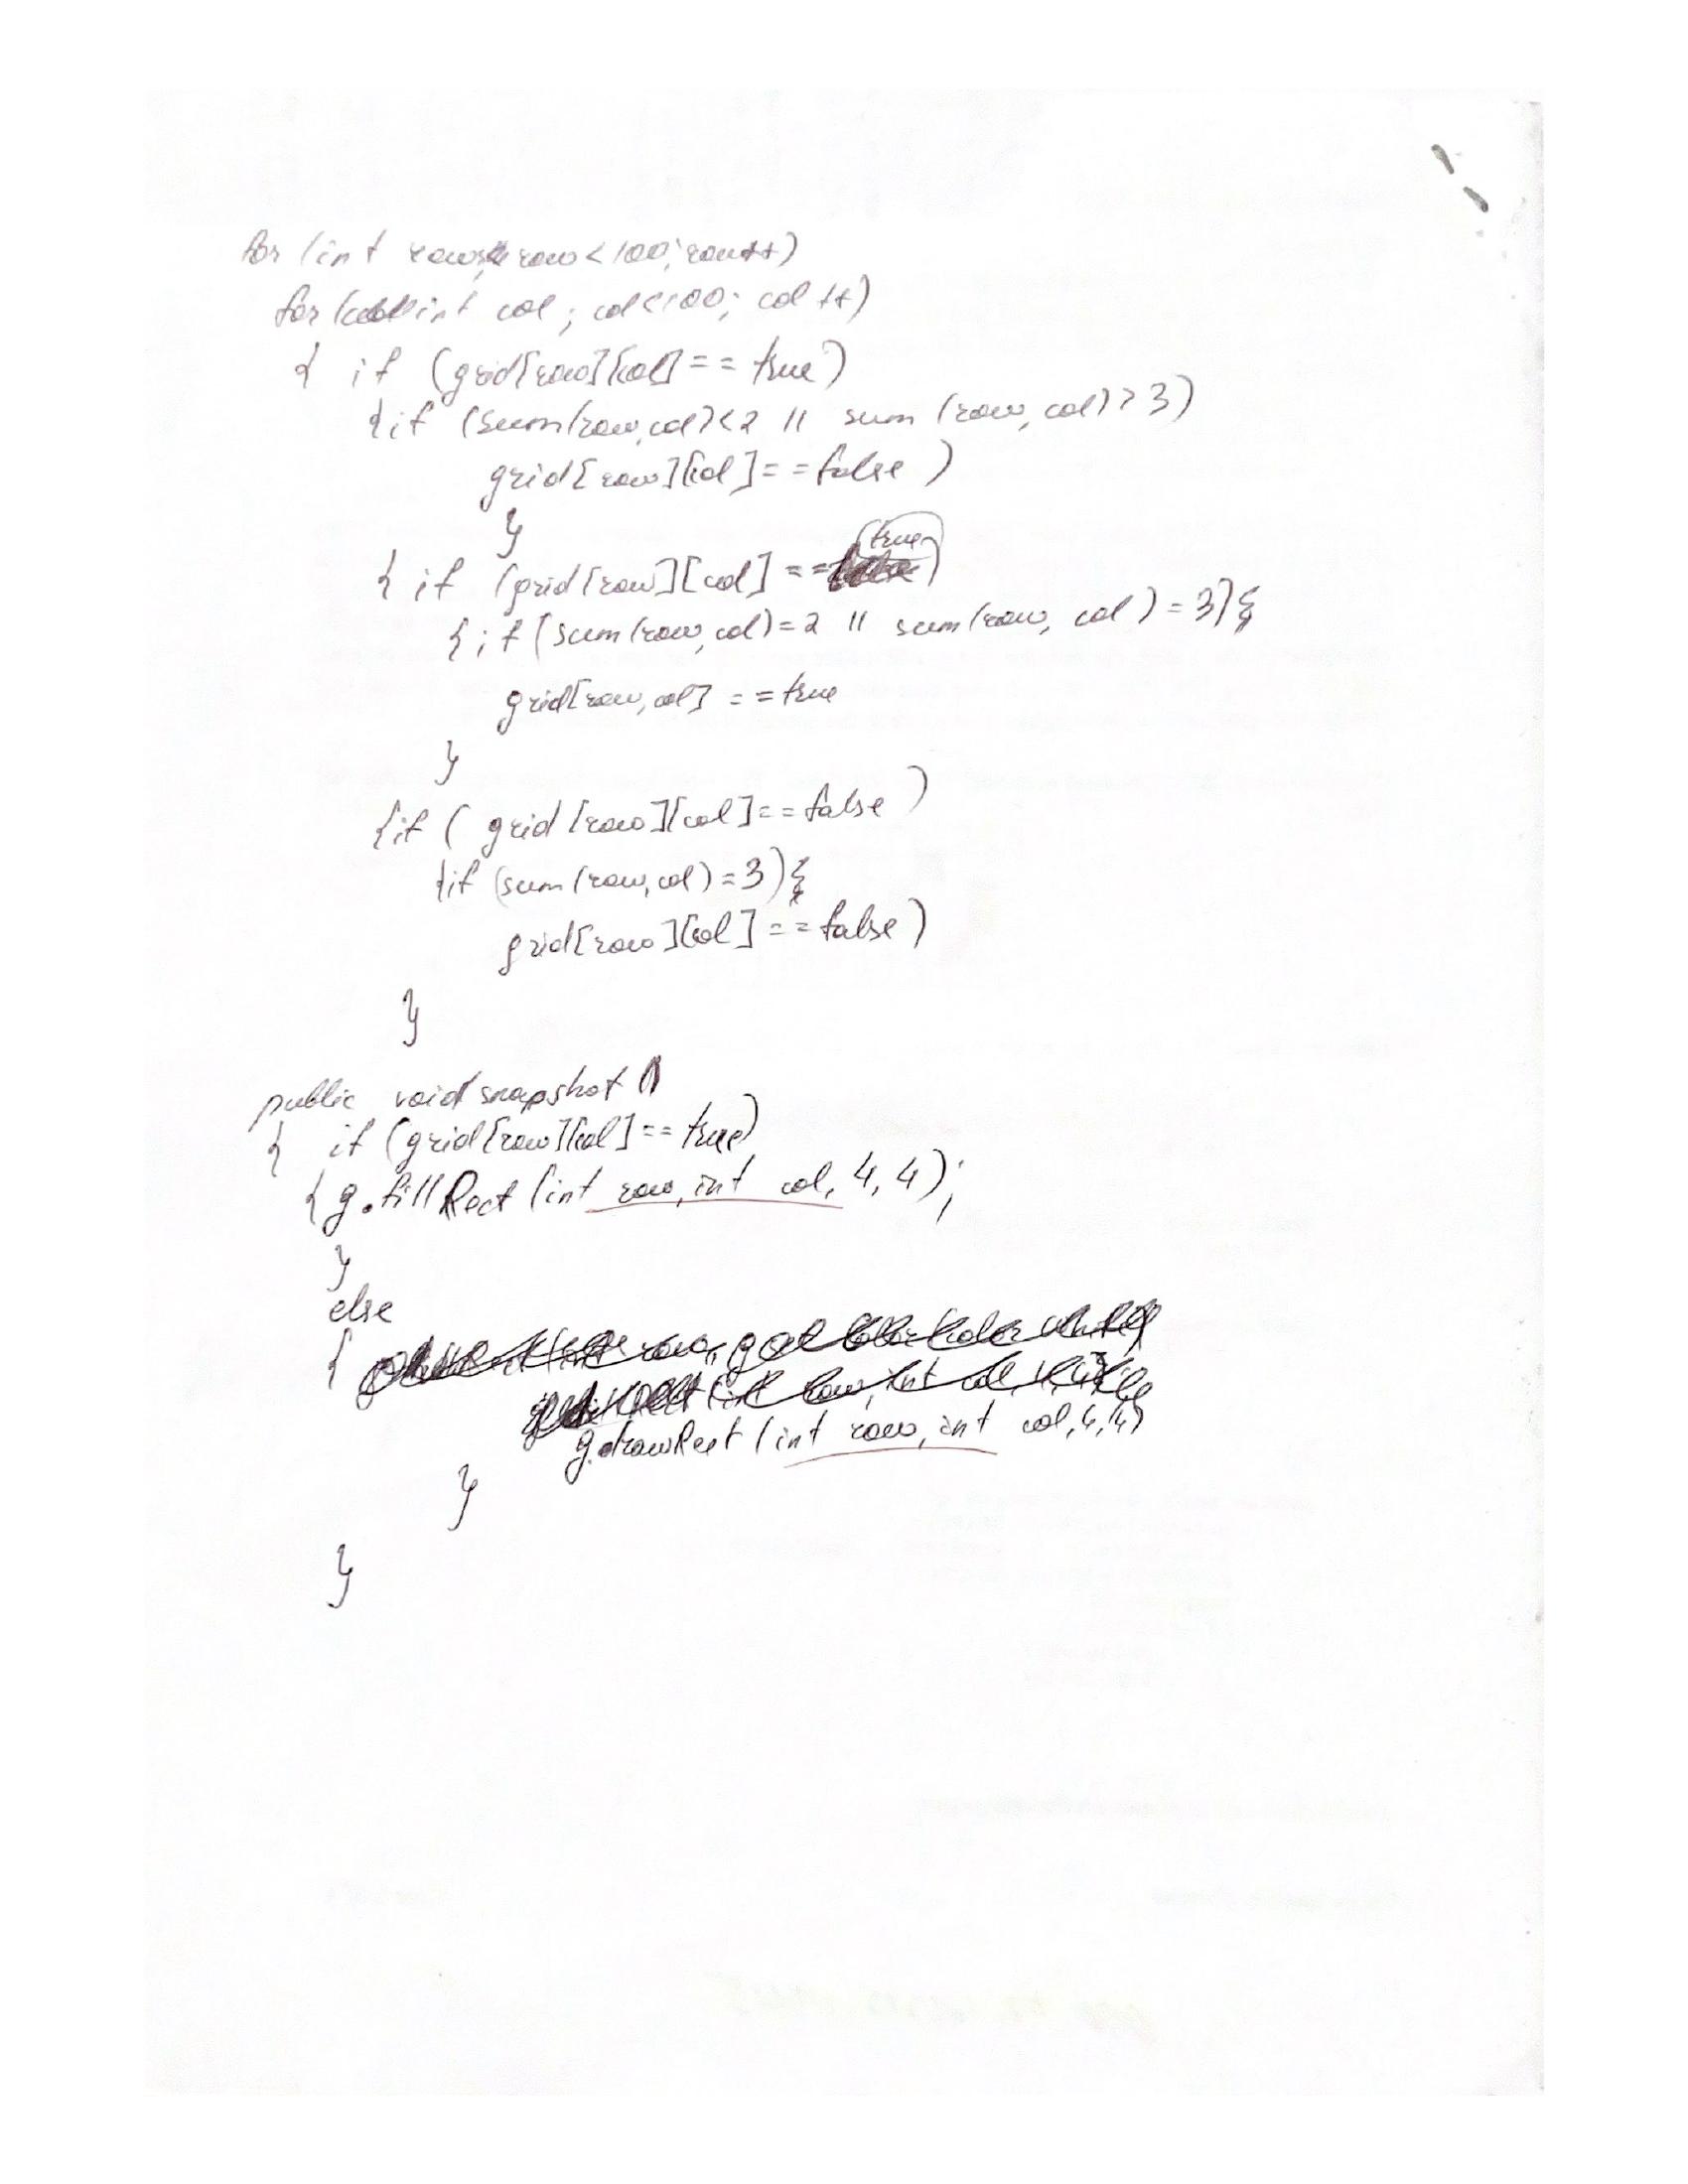 for (int row; row < 100; row++)
for (int col; col<100; col++)
{ if (grid[row][col] == true)
{if (sum(row,col)<2 || sum (row, col)>3)
grid[row][col]==false )
}
{ if (grid[row][col] == true)
{ if (sum(row,col)=2 || sum(row, col)=3){
grid[row,col] ==true
}
{if ( grid [row][col]==false )
{if (sum(row,col)=3){
grid[row][col]==false)
}
public void snapshot ()
{ if (grid[row][col]==true)
{ g.fillRect (int row, int col, 4, 4);
}
else
{
g.drawRect (int row, int col,4,4)
}
}